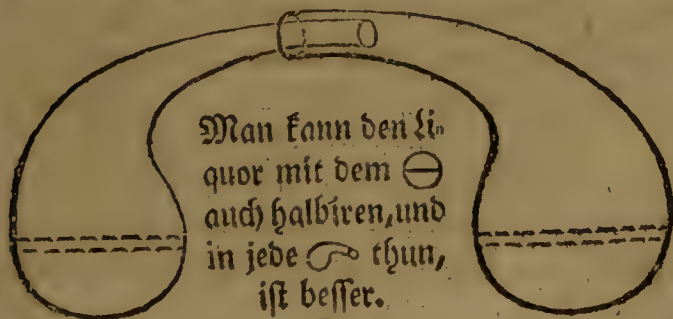 Man kann den Li-
quor mit dem 🜔
auch halbiren, und
in jede thun,
ist besser.